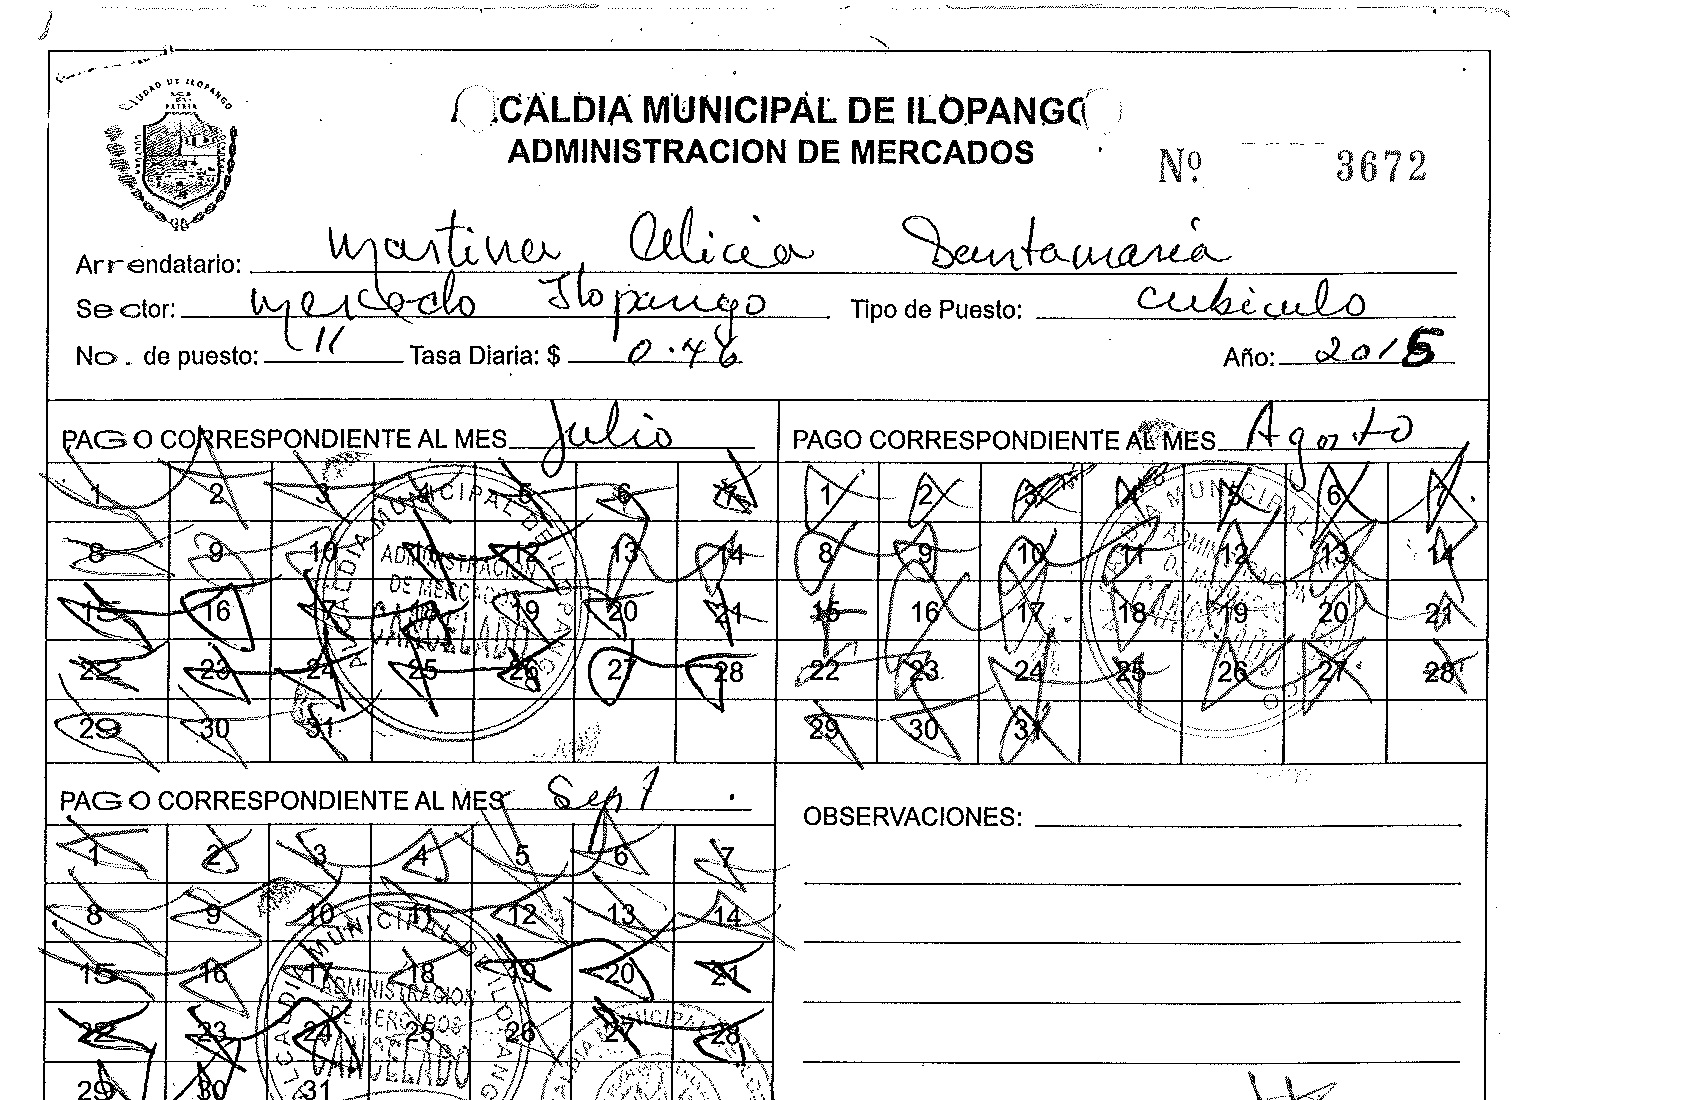 CIUDAD DE ILOPANGO
ALCALDIA MUNICIPAL DE ILOPANGO
ADMINISTRACION DE MERCADOS
Nº 3672
Arrendatario: Martina Alicia Santamaria
Sector: Mercado Ilopango Tipo de Puesto: cubiculo
No. de puesto: 11 Tasa Diaria: $ 0.46 Año: 2015
PAGO CORRESPONDIENTE AL MES Julio
1 2 3 4 5 6 7
8 9 10 11 12 13 14
15 16 17 18 19 20 21
22 23 24 25 26 27 28
29 30 31
ALCALDIA MUNICIPAL DE ILOPANGO
ADMINISTRACION
DE MERCADOS
CANCELADO
PAGO CORRESPONDIENTE AL MES Agosto
1 2 3 4 5 6 7
8 9 10 11 12 13 14
15 16 17 18 19 20 21
22 23 24 25 26 27 28
29 30 31
PAGO CORRESPONDIENTE AL MES Sept
1 2 3 4 5 6 7
8 9 10 11 12 13 14
15 16 17 18 19 20 21
22 23 24 25 26 27 28
29 30 31
ALCALDIA MUNICIPAL DE ILOPANGO
ADMINISTRACION
DE MERCADOS
CANCELADO
OBSERVACIONES: